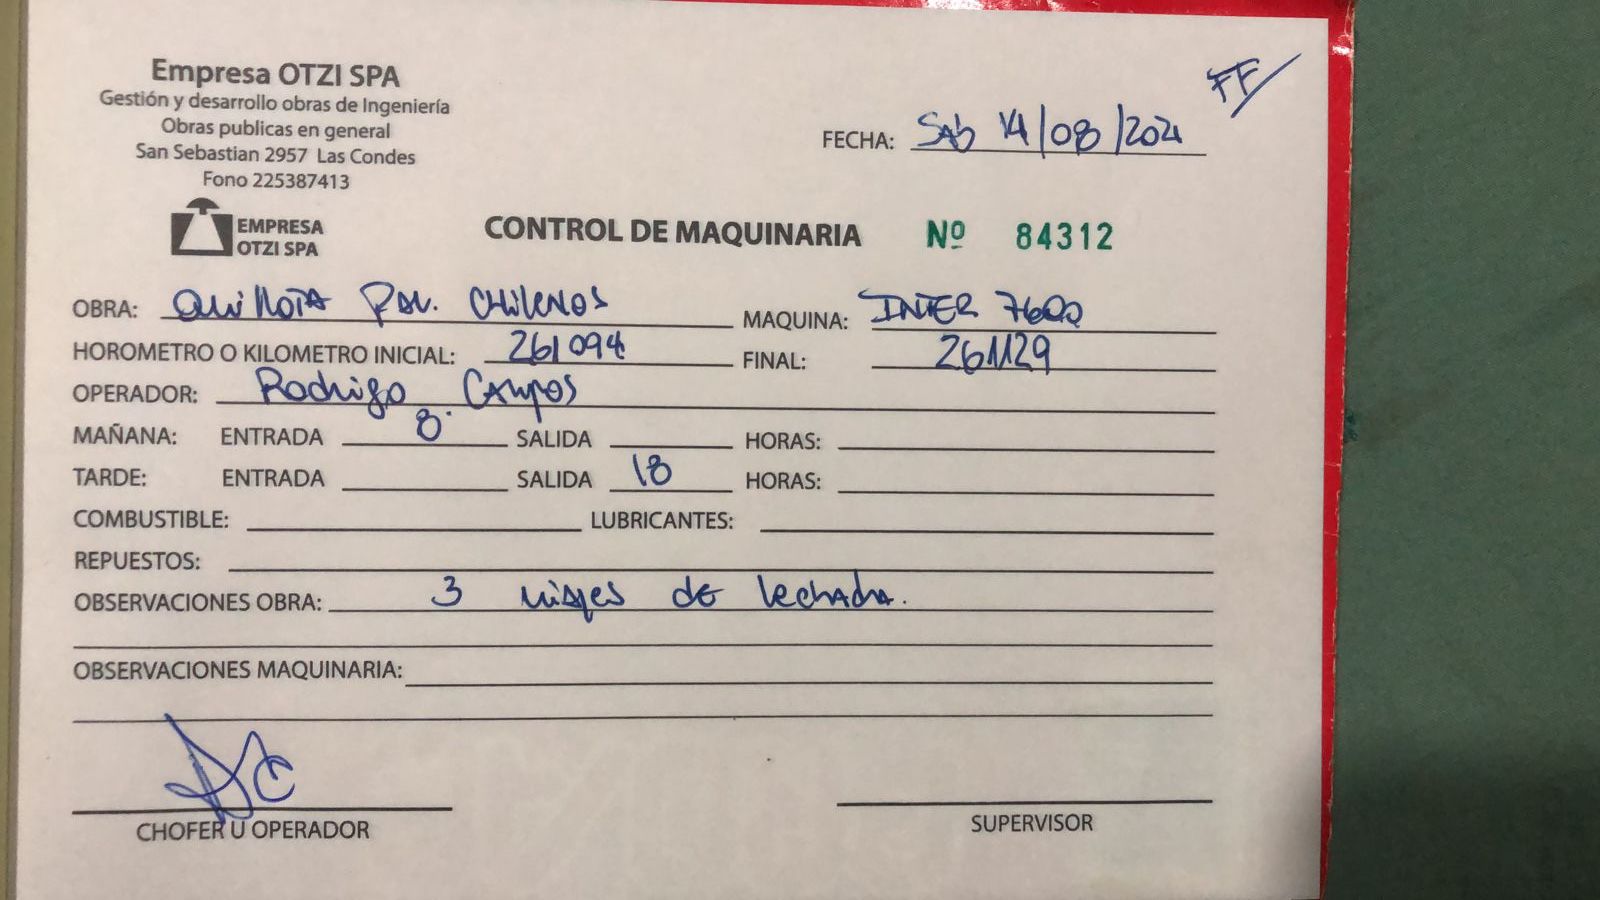 Empresa OTZI SPA
Gestión y desarrollo obras de Ingeniería
Obras publicas en general
San Sebastian 2957 Las Condes
Fono 225387413
FF
FECHA: SAb 14/08/2021
EMPRESA
OTZI SPA
CONTROL DE MAQUINARIA Nº 84312
OBRA: Quillota PAV. CHilENOS MAQUINA: INTER 7600
HOROMETRO O KILOMETRO INICIAL: 261094 FINAL: 261129
OPERADOR: Rodrigo CAMPOS
MAÑANA: ENTRADA 8. SALIDA HORAS:
TARDE: ENTRADA SALIDA 18 HORAS:
COMBUSTIBLE: LUBRICANTES:
REPUESTOS:
OBSERVACIONES OBRA: 3 viajes de lechada.
OBSERVACIONES MAQUINARIA:
CHOFER U OPERADOR SUPERVISOR